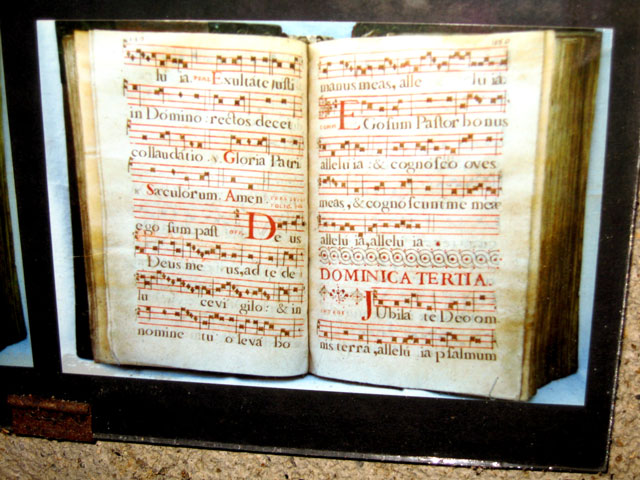 lu ia. Exultate justi
in Domino: rectos decet
collaudatio. v. Gloria Patri.
Sæculorum. Amen.
ego sum past De us
Deus me us, ad te de
lu ce vi gilo: & in
nomine tu o leva bo
manus meas, alle lu ia.
EGo sum Pastor bonus
allelu ia: & cognosco oves
meas, & cognoscunt me meæ
allelu ia, allelu ia.
DOMINICA TERTIA.
JUbila te Deo om
nis terra, allelu ia psalmum